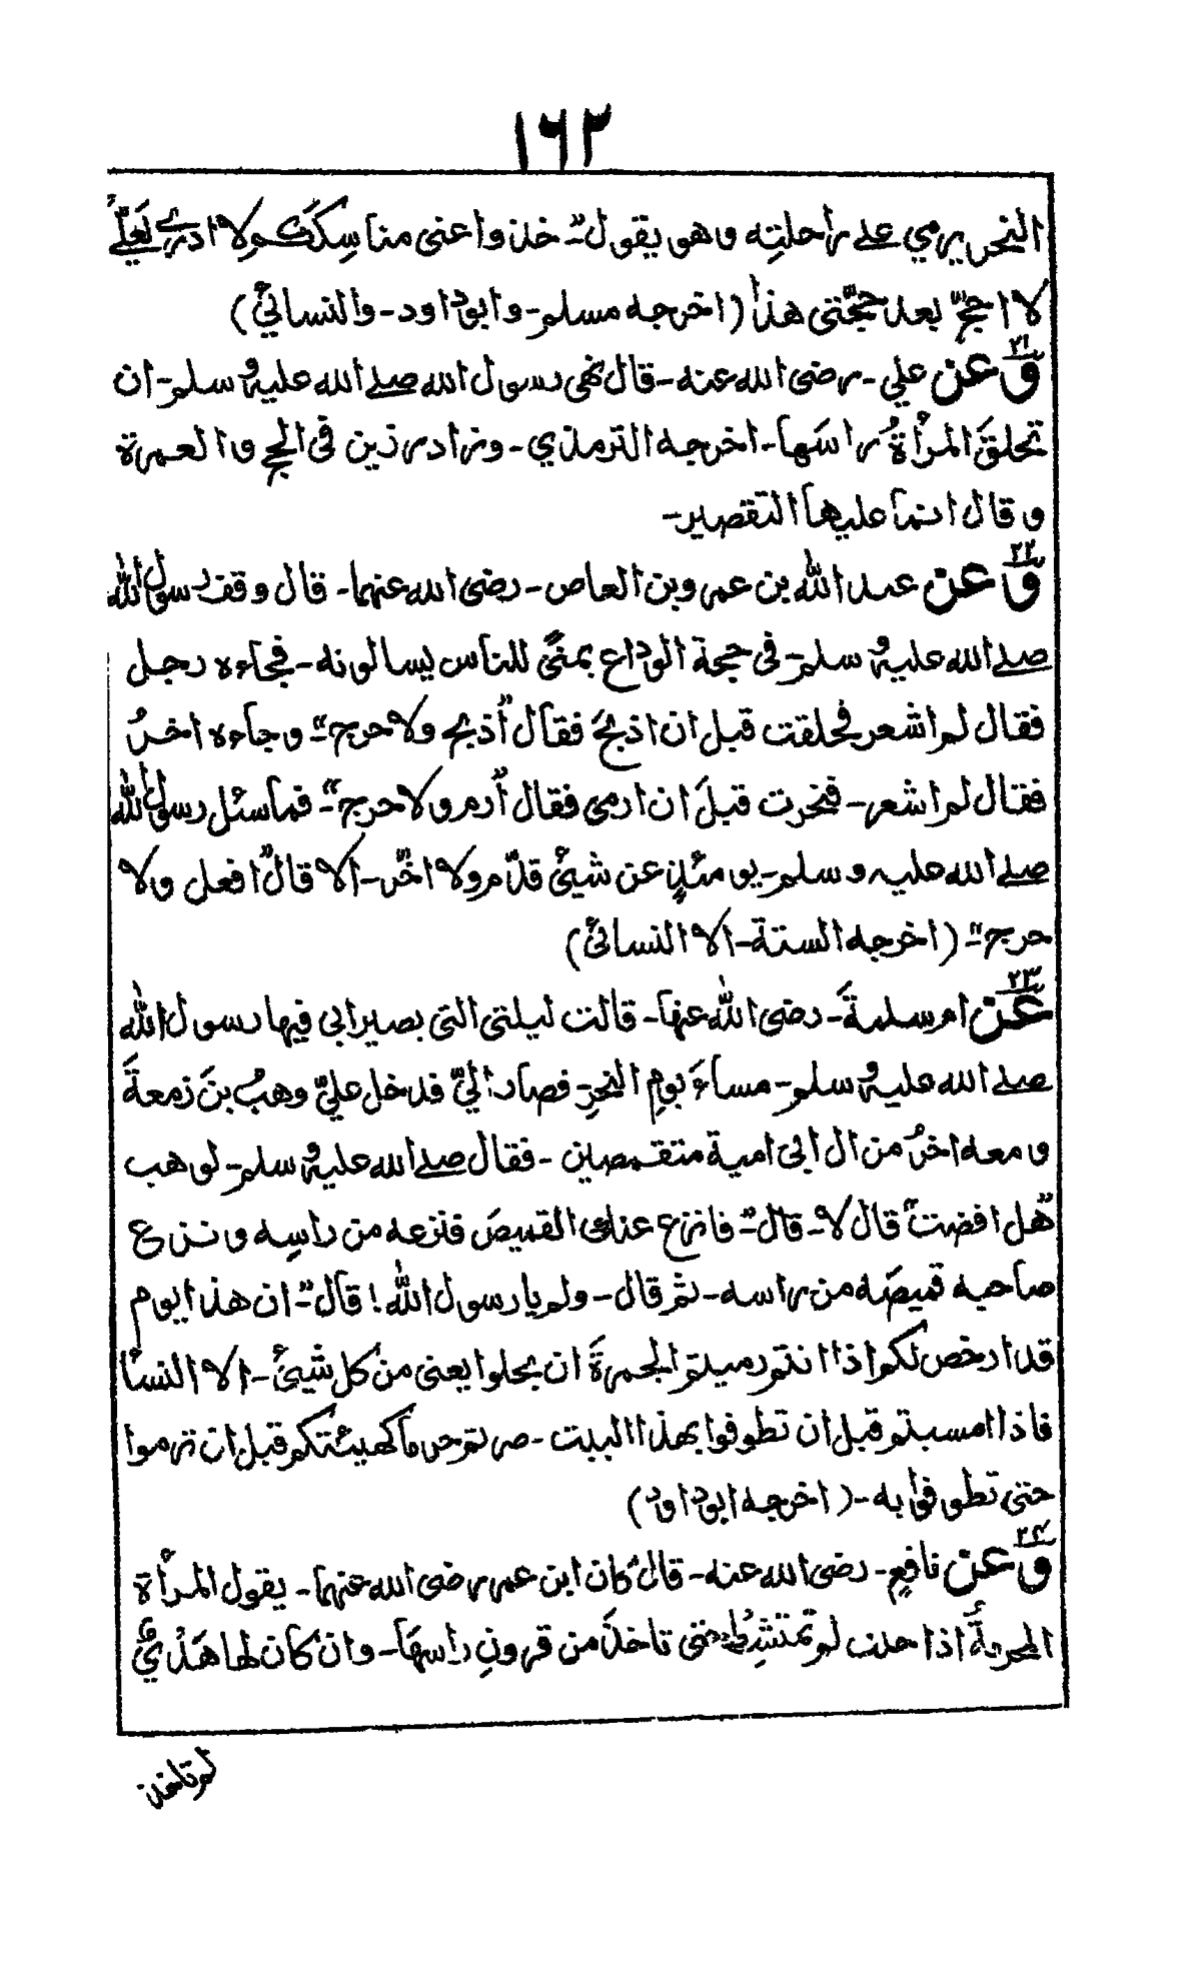 ١٦٢
النحر يرمي على راحلتِه وهو يقول "خذوا عنى مناسِككُم ولا ادري لَعَلّي
لا احجّ بعد حجّتى هذا (اخرجه مسلم - وابوداود - والنسائيّ)
٢١
وعن علي - رضى الله عنه - قال نهى رسول الله صلى الله عليه وسلم - ان
تحلقَ المرأةُ راسَها - اخرجه الترمذي - وزاد رزين فى الحج والعمرة
وقال انما عليها التقصير -
٢٢
وعن عبد الله بن عمرو بن العاص - رضى الله عنهما - قال وقف رسول الله
صلى الله عليه وسلم - فى حجة الوداع بمنًى للناس يسالونه - فجاءه رجل
فقال لم اشعر فحلقت قبل ان اذبحَ فقال "اُذبح ولا حرج" وجاءه اخرُ
فقال لم اشعر - فنحرت قبلَ ان ارمى فقال "اُرم ولا حرج" - فما سئل رسول الله
صلى الله عليه وسلم - يومئذٍ عن شيئ قدّم ولا اخّر - الا قال "افعل ولا
حرج" - (اخرجه الستة - الا النسائىّ)
٢٣
عن ام سلمةَ - رضى الله عنها - قالت ليلتى التى يصير الى فيها رسول الله
صلى الله عليه وسلم - مساءَ يومِ النحرِ - فصار اليّ فدخل عليّ وهبُ بن زمعةَ
ومعه اخرُ من ال ابى امية متقمصين - فقال صلى الله عليه وسلم - لوهب
"هل افضت" قال لا - قال " فانزع عنك القميصَ فنزعه من راسِه ونزع
صاحبه قميصَه من راسه - ثم قال - ولم يا رسول الله! قال " ان هذا ايوم
قد ارخص لكم اذا انتم رميتم الجمرةَ ان يحلوا يعنى من كل شيئ - الا النسأ
فاذا امسيتم قبل ان تطوفوا بهذا البيت - صرتم حرما كهيئتكم قبل ان ترموا
حتى تطوفوا به - (اخرجه ابوداود)
٢٤
وعن نافعٍ - رضى الله عنه - قال كان ابن عمر رضى الله عنهما - يقول المرأة
المحرمةُ اذا حلت لم تمتشِط حتى تاخذَ من قرونِ راسِهَا - وان كان لها هَدْيٌ
لم تاخذ